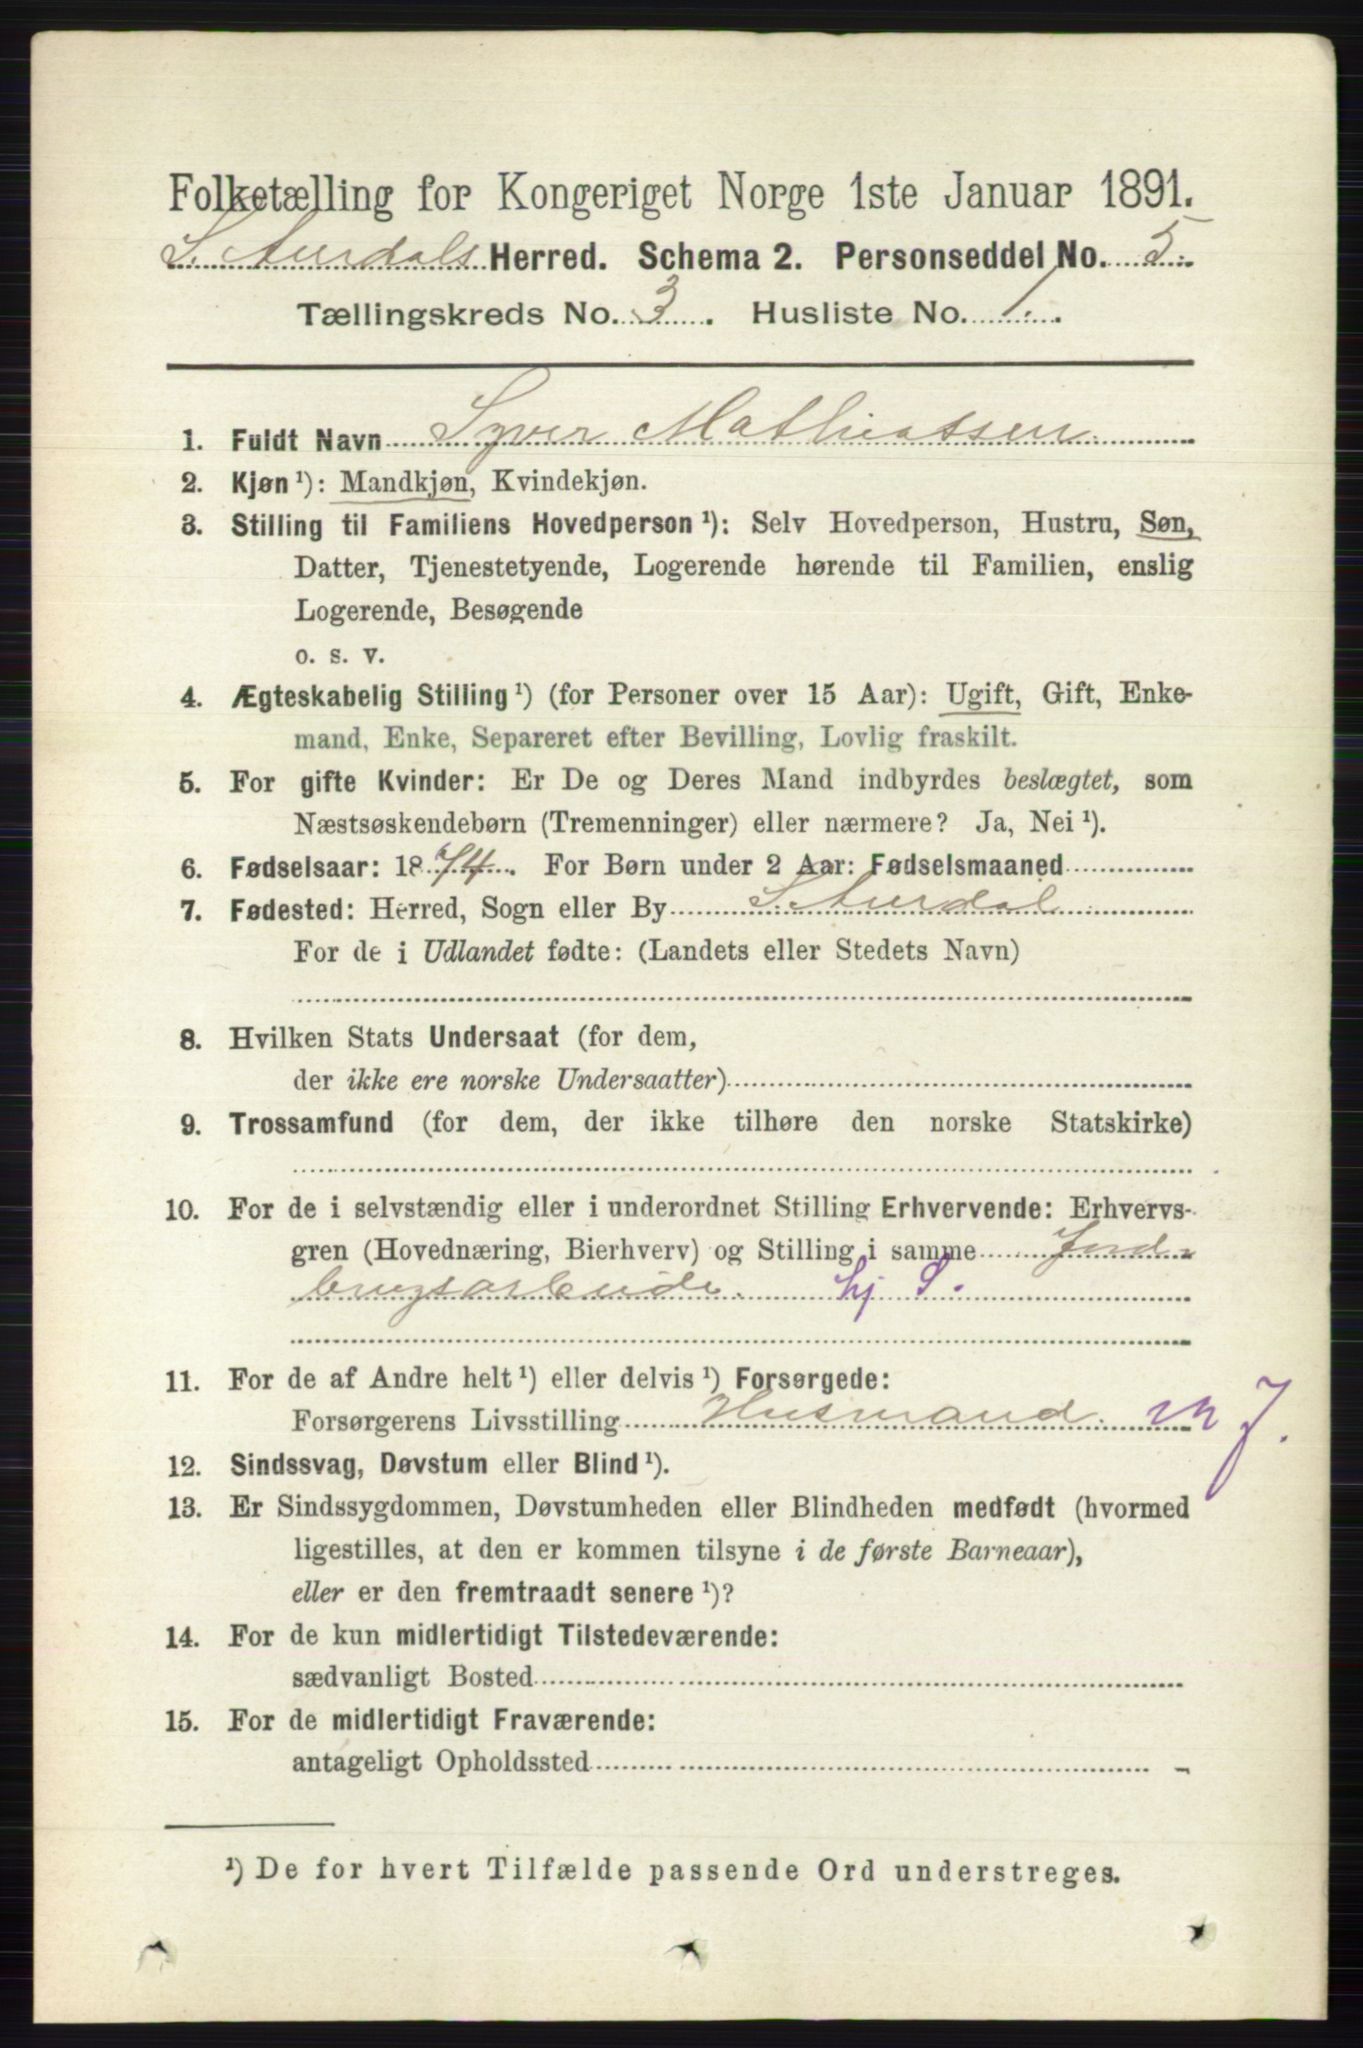 Folketælling for Kongeriget Norge 1ste Januar 1891.
S. Aurdals Herred. Schema 2. Personseddel No. 5.
Tællingskreds No. 3. Husliste No. 1.
1. Fuldt Navn Syver Mathiassen
2. Kjøn ¹): Mandkjøn, Kvindekjøn.
3. Stilling til Familiens Hovedperson ¹): Selv Hovedperson, Hustru, Søn,
Datter, Tjenestetyende, Logerende hørende til Familien, enslig
Logerende, Besøgende
o. s. v.
4. Ægteskabelig Stilling ¹) (for Personer over 15 Aar): Ugift, Gift, Enke-
mand, Enke, Separeret efter Bevilling, Lovlig fraskilt.
5. For gifte Kvinder: Er De og Deres Mand indbyrdes beslægtet, som
Næstsøskendebørn (Tremenninger) eller nærmere? Ja, Nei ¹).
6. Fødselsaar: 1874. For Børn under 2 Aar: Fødselsmaaned
7. Fødested: Herred, Sogn eller By S. Aurdal
For de i Udlandet fødte: (Landets eller Stedets Navn)
8. Hvilken Stats Undersaat (for dem,
der ikke ere norske Undersaatter)
9. Trossamfund (for dem, der ikke tilhøre den norske Statskirke)
10. For de i selvstændig eller i underordnet Stilling Erhvervende: Erhvervs-
gren (Hovednæring, Bierhverv) og Stilling i samme Jord-
brugsarbeide. hj S.
11. For de af Andre helt ¹) eller delvis ¹) Forsørgede:
Forsørgerens Livsstilling Husmand. m J.
12. Sindssvag, Døvstum eller Blind ¹).
13. Er Sindssygdommen, Døvstumheden eller Blindheden medfødt (hvormed
ligestilles, at den er kommen tilsyne i de første Barneaar),
eller er den fremtraadt senere ¹)?
14. For de kun midlertidigt Tilstedeværende:
sædvanligt Bosted
15. For de midlertidigt Fraværende:
antageligt Opholdssted
¹) De for hvert Tilfælde passende Ord understreges.